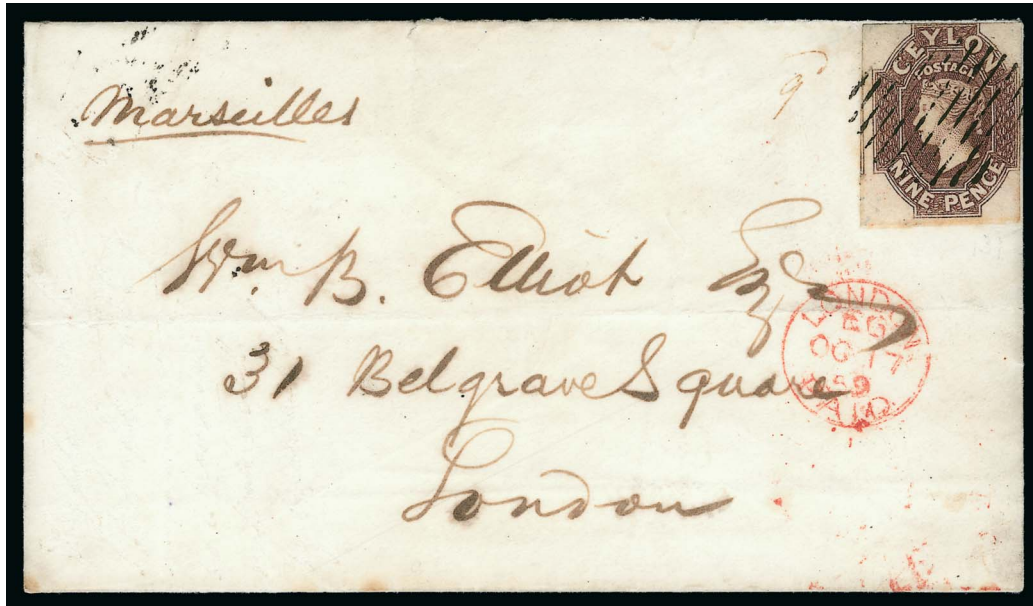 Marseilles
9
CEYLON
POSTAGE
NINE PENCE
Wm B. Elliot Esq
31 Belgrave Square
London
LONDON
EG
OC 17
59
PAID